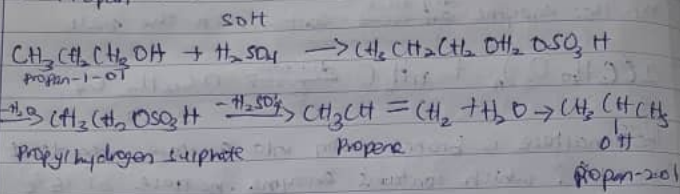 SOH
CH3CH2CH2OH + H2SO4 → CH3 CH2 CH2 OH2 OSO3 H
propan-1-ol
-H2O→ CH3CH2 OSO3H -H2SO4→ CH3CH = CH2 + H2O → CH3 CH CH3
Propyl hydrogen sulphate Propene OH
propan-2-ol